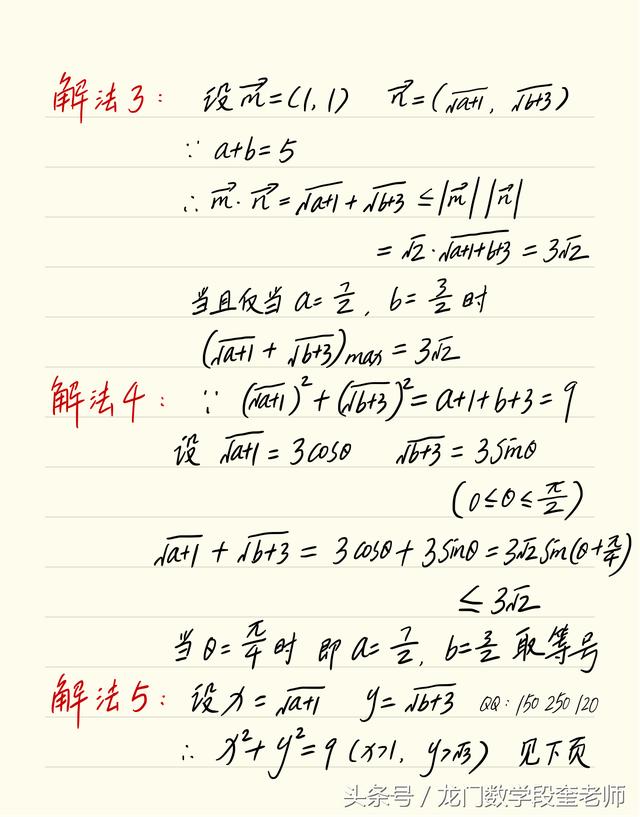 解法3： 设 m⃗=(1,1) n⃗=(√a+1, √b+3)
∵ a+b=5
∴ m⃗·n⃗=√a+1+√b+3 ≤|m⃗||n⃗|
=√2·√a+1+b+3=3√2
当且仅当 a=7/2, b=3/2 时
(√a+1+√b+3)max=3√2
解法4： ∵ (√a+1)²+(√b+3)²=a+1+b+3=9
设 √a+1=3cosθ √b+3=3sinθ
(0≤θ≤π/2)
√a+1+√b+3=3cosθ+3sinθ=3√2sin(θ+π/4)
≤3√2
当θ=π/4时 即 a=7/2, b=3/2 取等号
解法5： 设 x=√a+1 y=√b+3 QQ: 150 250 120
∴ x²+y²=9 (x>1, y>√3) 见下页
头条号 / 龙门数学段奎老师